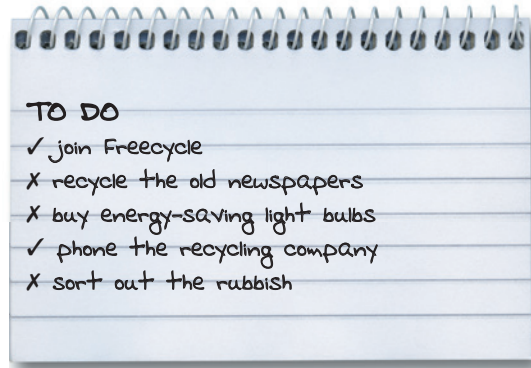 TO DO
✓ join Freecycle
✗ recycle the old newspapers
✗ buy energy-saving light bulbs
✓ phone the recycling company
✗ sort out the rubbish